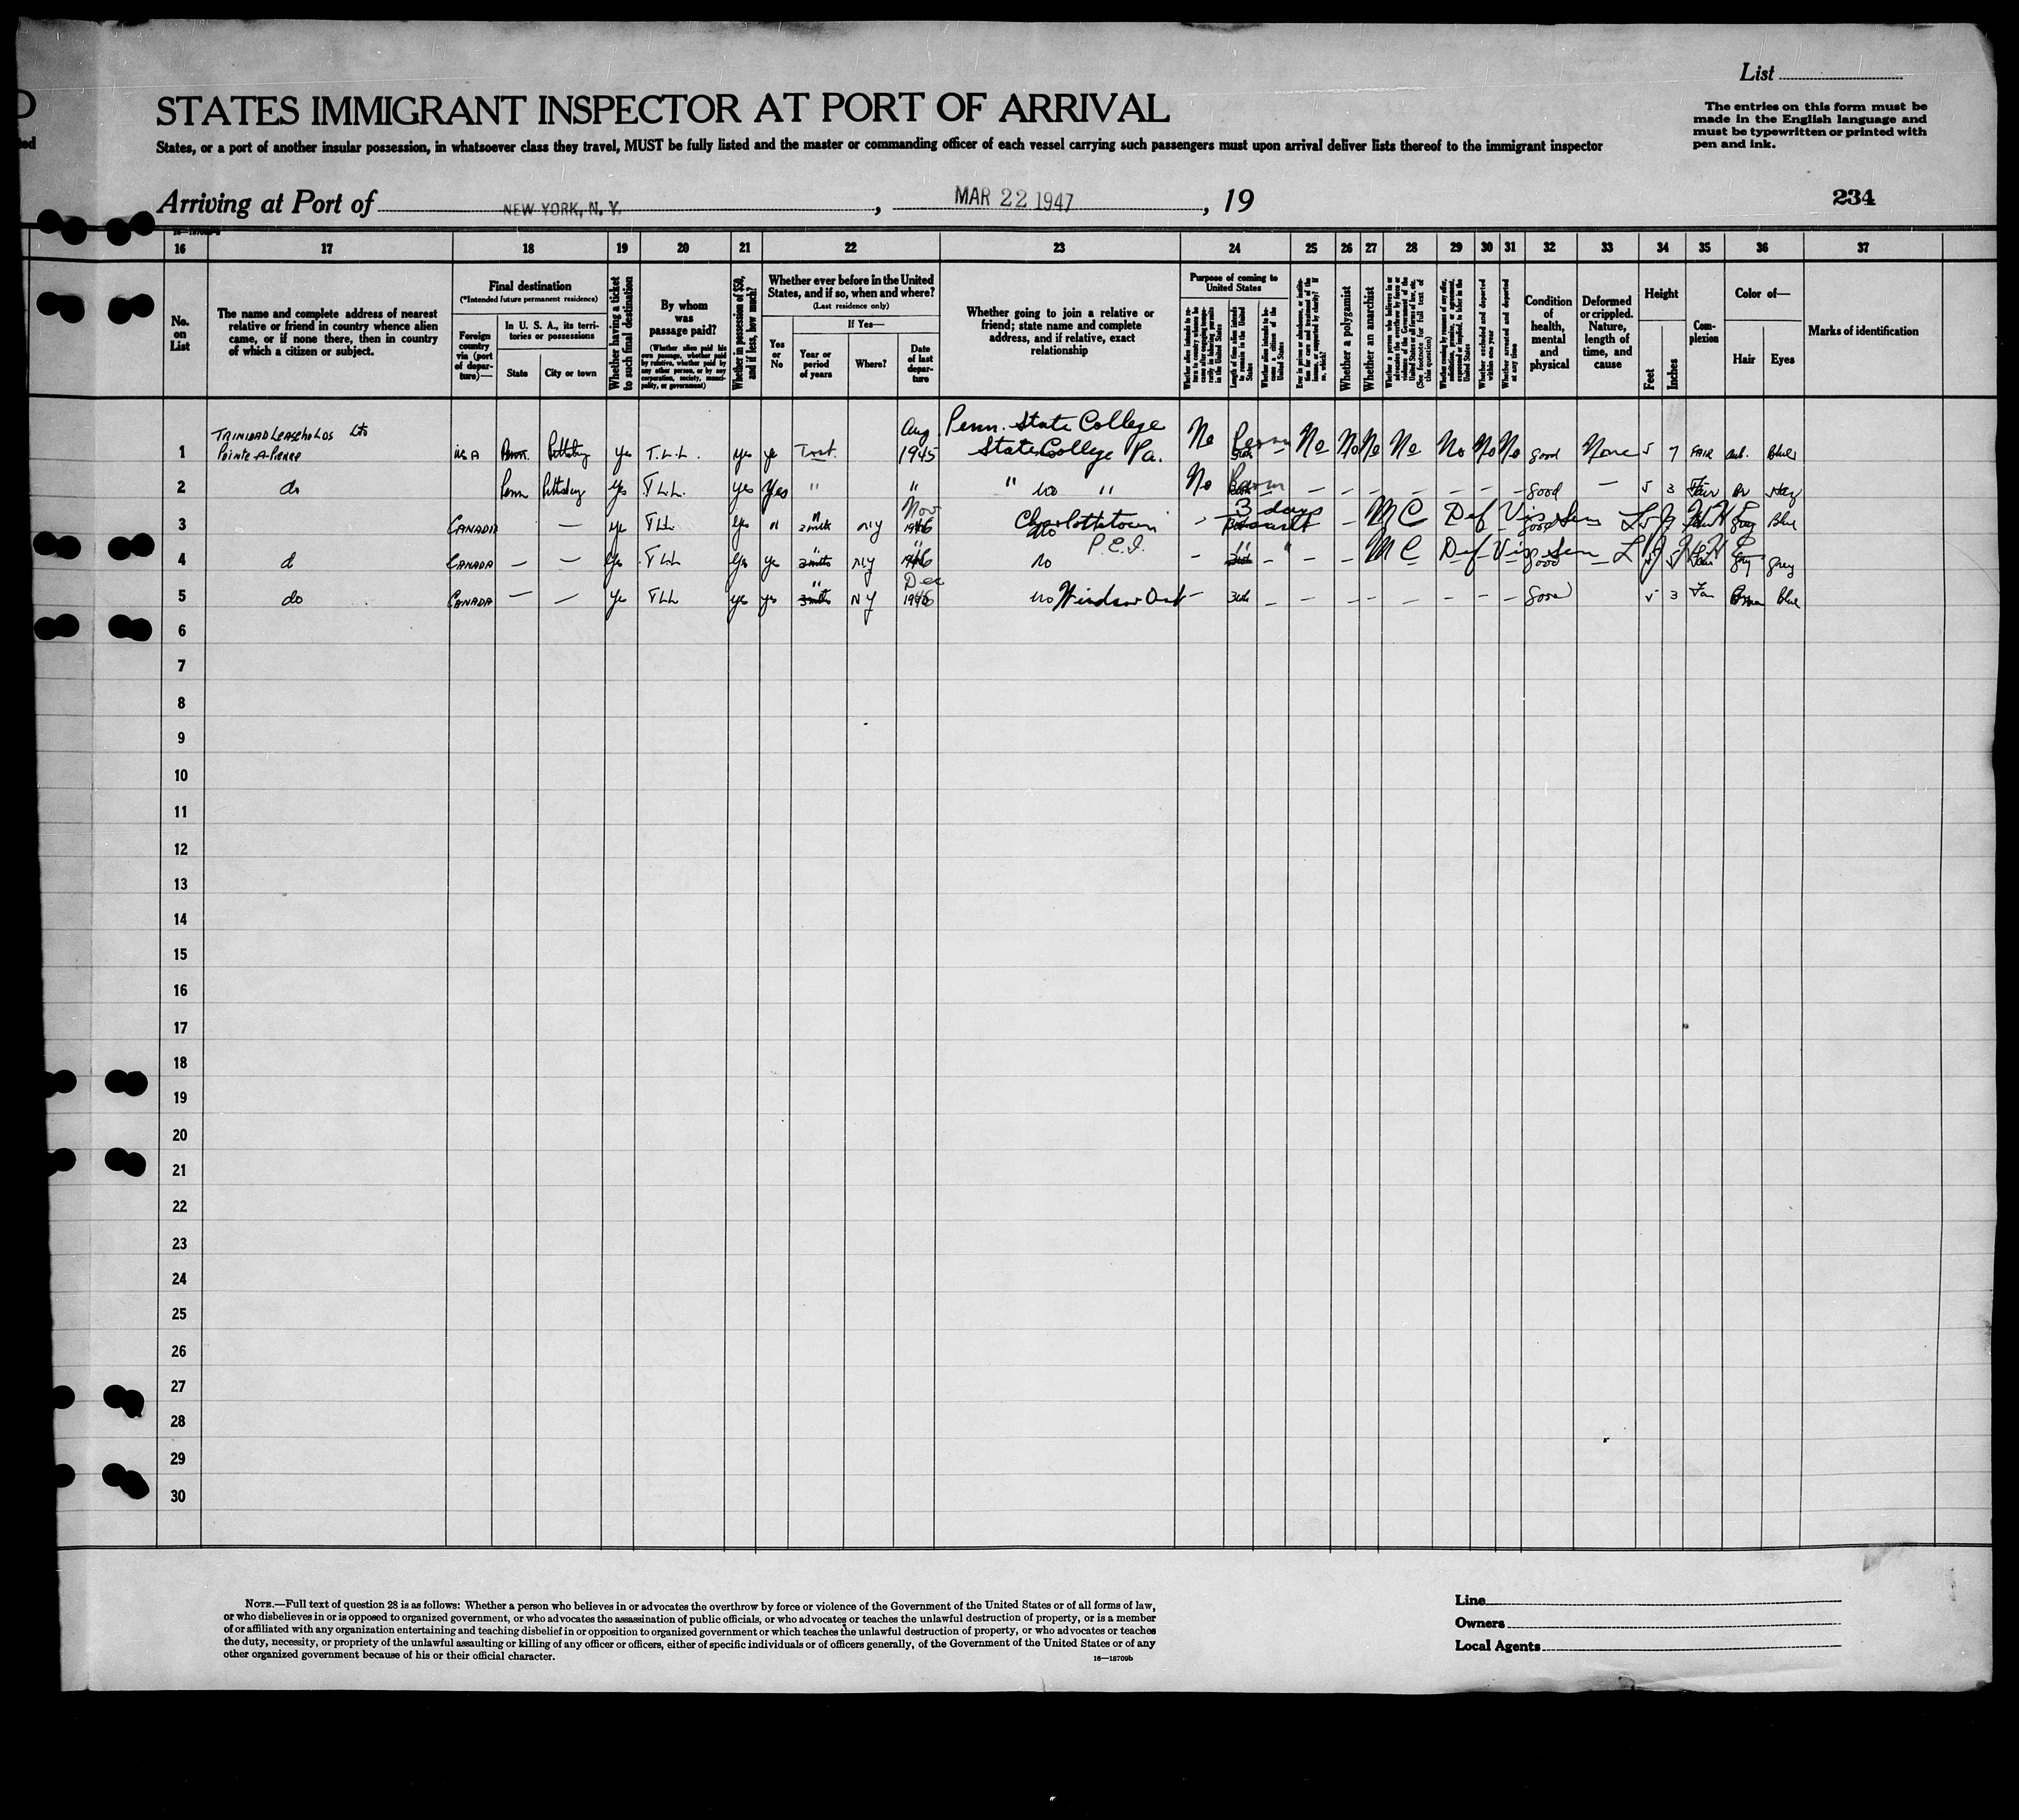 List
STATES IMMIGRANT INSPECTOR AT PORT OF ARRIVAL
The entries on this form must be
made in the English language and
must be typewritten or printed with
pen and ink.
States, or a port of another insular possession, in whatsoever class they travel, MUST be fully listed and the master or commanding officer of each vessel carrying such passengers must upon arrival deliver lists thereof to the immigrant inspector
Arriving at Port of NEW YORK, N. Y. , MAR 22 1947 , 19
234
16 17 18 19 20 21 22 23 24 25 26 27 28 29 30 31 32 33 34 35 36 37
No.
on
List
The name and complete address of nearest
relative or friend in country whence alien
came, or if none there, then in country
of which a citizen or subject.
Final destination
(*Intended future permanent residence)
Foreign
country
via (port
of depar-
ture)—
In U. S. A., its terri-
tories or possessions
State
City or town
Whether having a ticket
to such final destination
By whom
was
passage paid?
(Whether alien paid his
own passage, whether paid
by relative, whether paid by
any other person, or by any
corporation, society, munici-
pality, or government)
Whether in possession of $50,
and if less, how much?
Whether ever before in the United
States, and if so, when and where?
(Last residence only)
Yes
or
No
If Yes—
Year or
period
of years
Where?
Date
of last
depar-
ture
Whether going to join a relative or
friend; state name and complete
address, and if relative, exact
relationship
Purpose of coming to
United States
Whether alien intends to re-
turn to country whence he
came after engaging tempo-
rarily in laboring pursuits
in the United States
Length of time alien intends
to remain in the United
States
Whether alien intends to be-
come a citizen of the
United States
Whether a polygamist
Whether an anarchist
Whether excluded and deported
within one year
Whether arrested and deported
at any time
Condition
of
health,
mental
and
physical
Deformed
or crippled.
Nature,
length of
time, and
cause
Height
Feet
Inches
Com-
plexion
Color of—
Hair
Eyes
Marks of identification
TRINIDAD LEASEHOLDS Ltd
1 POINTE-A-PIERRE USA Penn. Pittsburg yes T.L.L. yes Aug 1945 Penn. State College
State College Pa. No Perm No No No No No No No good None 5 7 FAIR Blue
2 do Penn Pittsburg Yes T.L.L. yes Yes " " " no " No Perm — — — — — — — Good — 5 3 Fair Br
3 CANADA — yes TLL yes " NY Nov 1946 Charlottetown no 3 days Transit — MC Def Vis Sen Good Grey Blue
4 d CANADA — — Yes TLL yes yes " NY " 1946 no P.E.I. — " " — — MC Def Vis Sen Good — Grey Grey
5 do CANADA — — yes TLL yes yes " NY Dec 1946 no Windsor Ont — — — — — — — — Good 5 3 Brown Blue
6
7
8
9
10
11
12
13
14
15
16
17
18
19
20
21
22
23
24
25
26
27
28
29
30
NOTE.—Full text of question 28 is as follows: Whether a person who believes in or advocates the overthrow by force or violence of the Government of the United States or of all forms of law,
or who disbelieves in or is opposed to organized government, or who advocates the assassination of public officials, or who advocates or teaches the unlawful destruction of property, or is a member
of or affiliated with any organization entertaining and teaching disbelief in or opposition to organized government or which teaches the unlawful destruction of property, or who advocates or teaches
the duty, necessity, or propriety of the unlawful assaulting or killing of any officer or officers, either of specific individuals or of officers generally, of the Government of the United States or of any
other organized government because of his or their official character.
16—18709b
Line
Owners
Local Agents